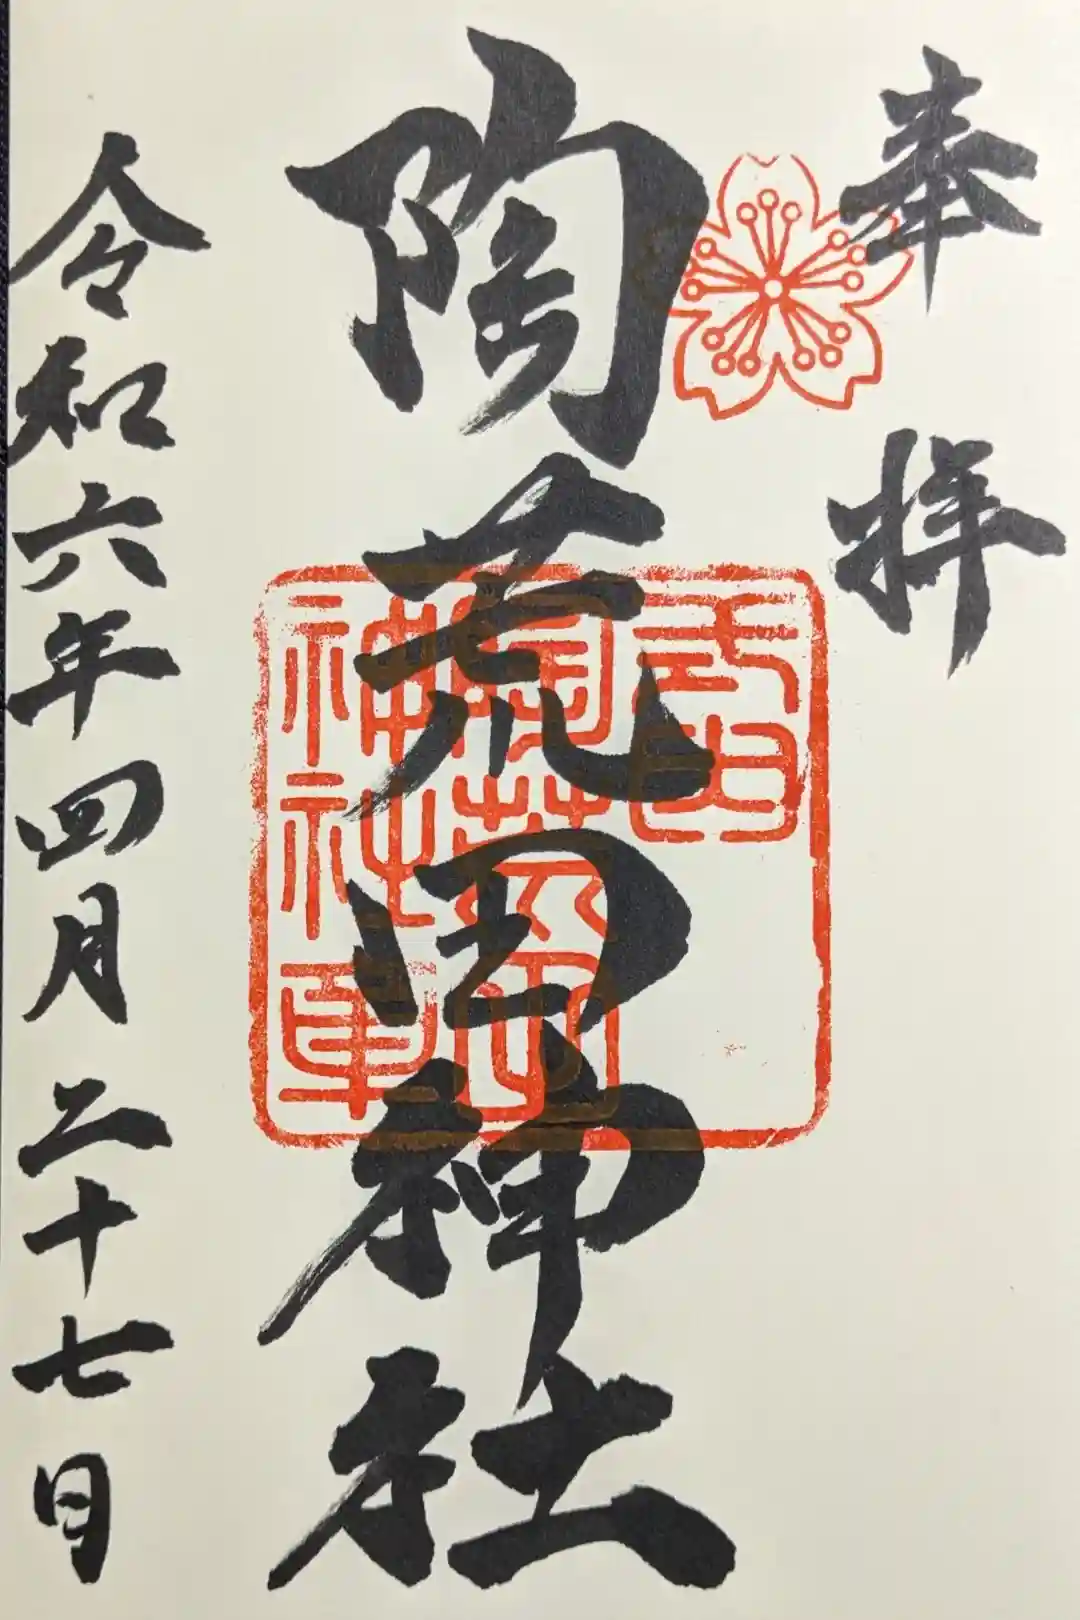 奉拝
陶荒田神社
令和六年四月二十七日
陶荒田
神社